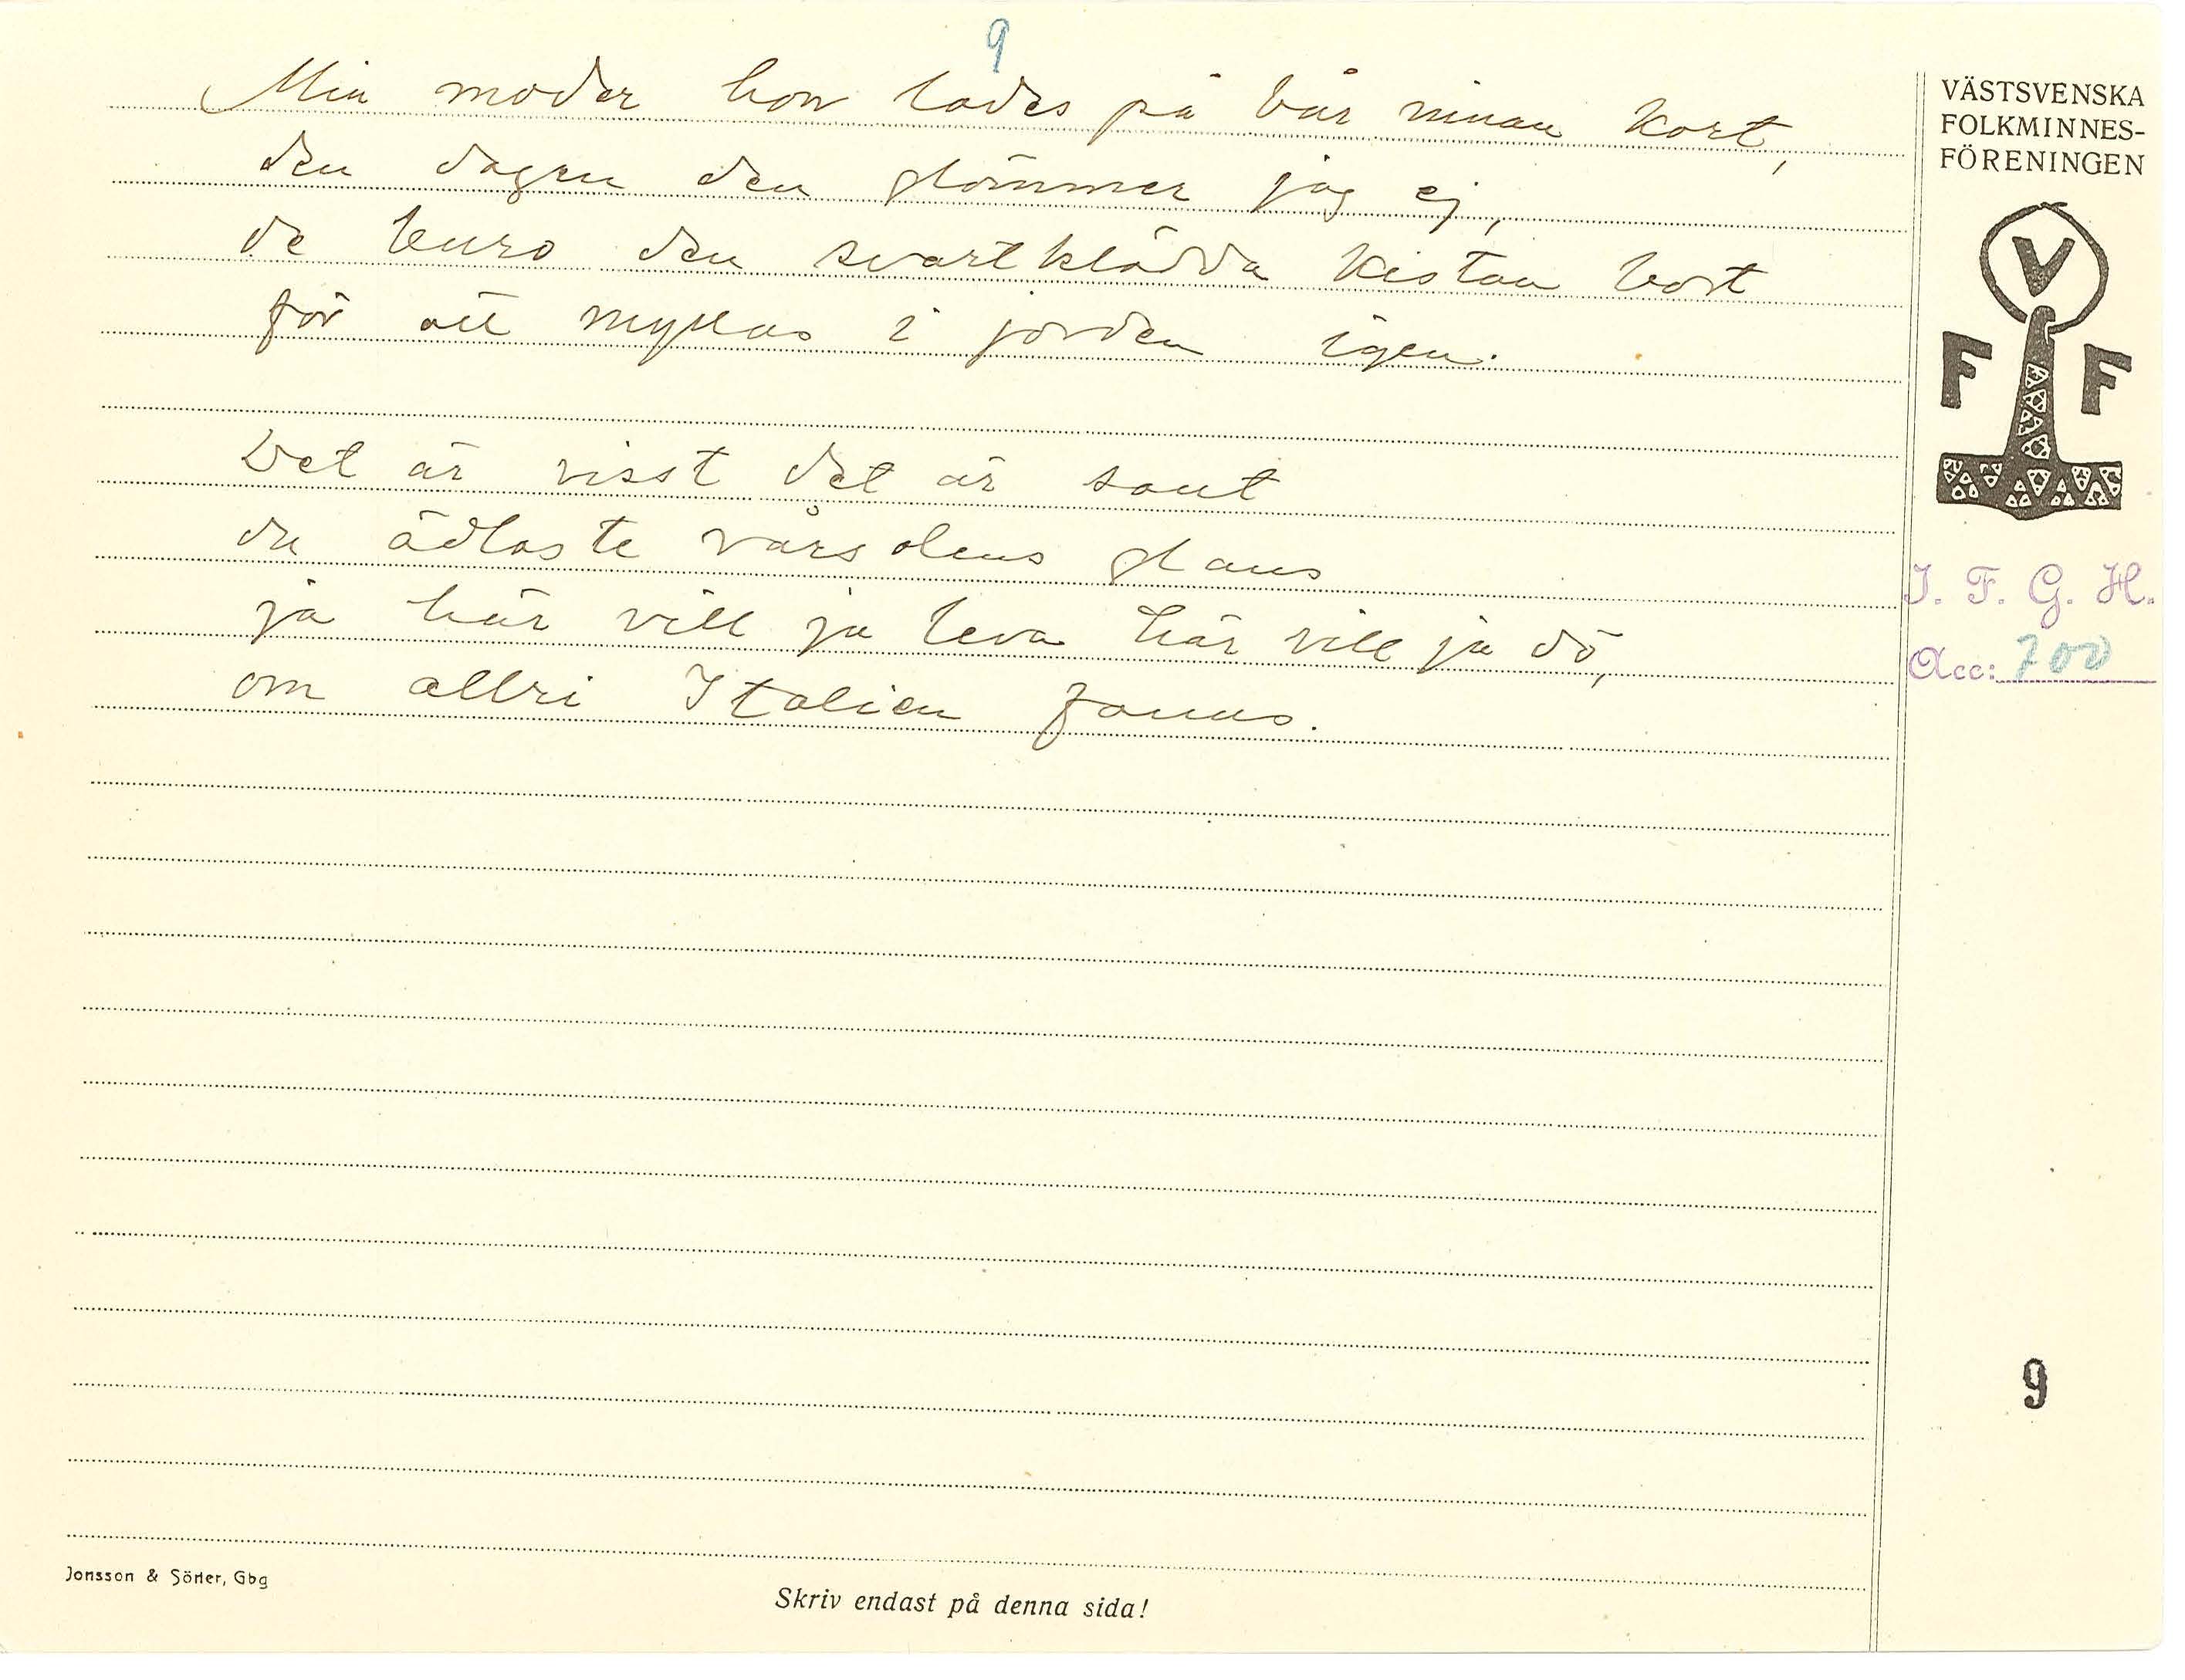 9
Min moder hon lades på bår innan kort,
den dagen den glömmer jag ej,
de buro den svartklädda kistan bort
för att myllas i jorden igen.
Det är visst det är sant
du ädlaste vårsolens glans
ja här vill ja leva här vill ja dö,
om allri Italien fanns.
VÄSTSVENSKA
FOLKMINNES-
FÖRENINGEN
V
F F
I. F. G. H.
Acc: 700
9
Jonsson & Söder, Gbg
Skriv endast på denna sida!